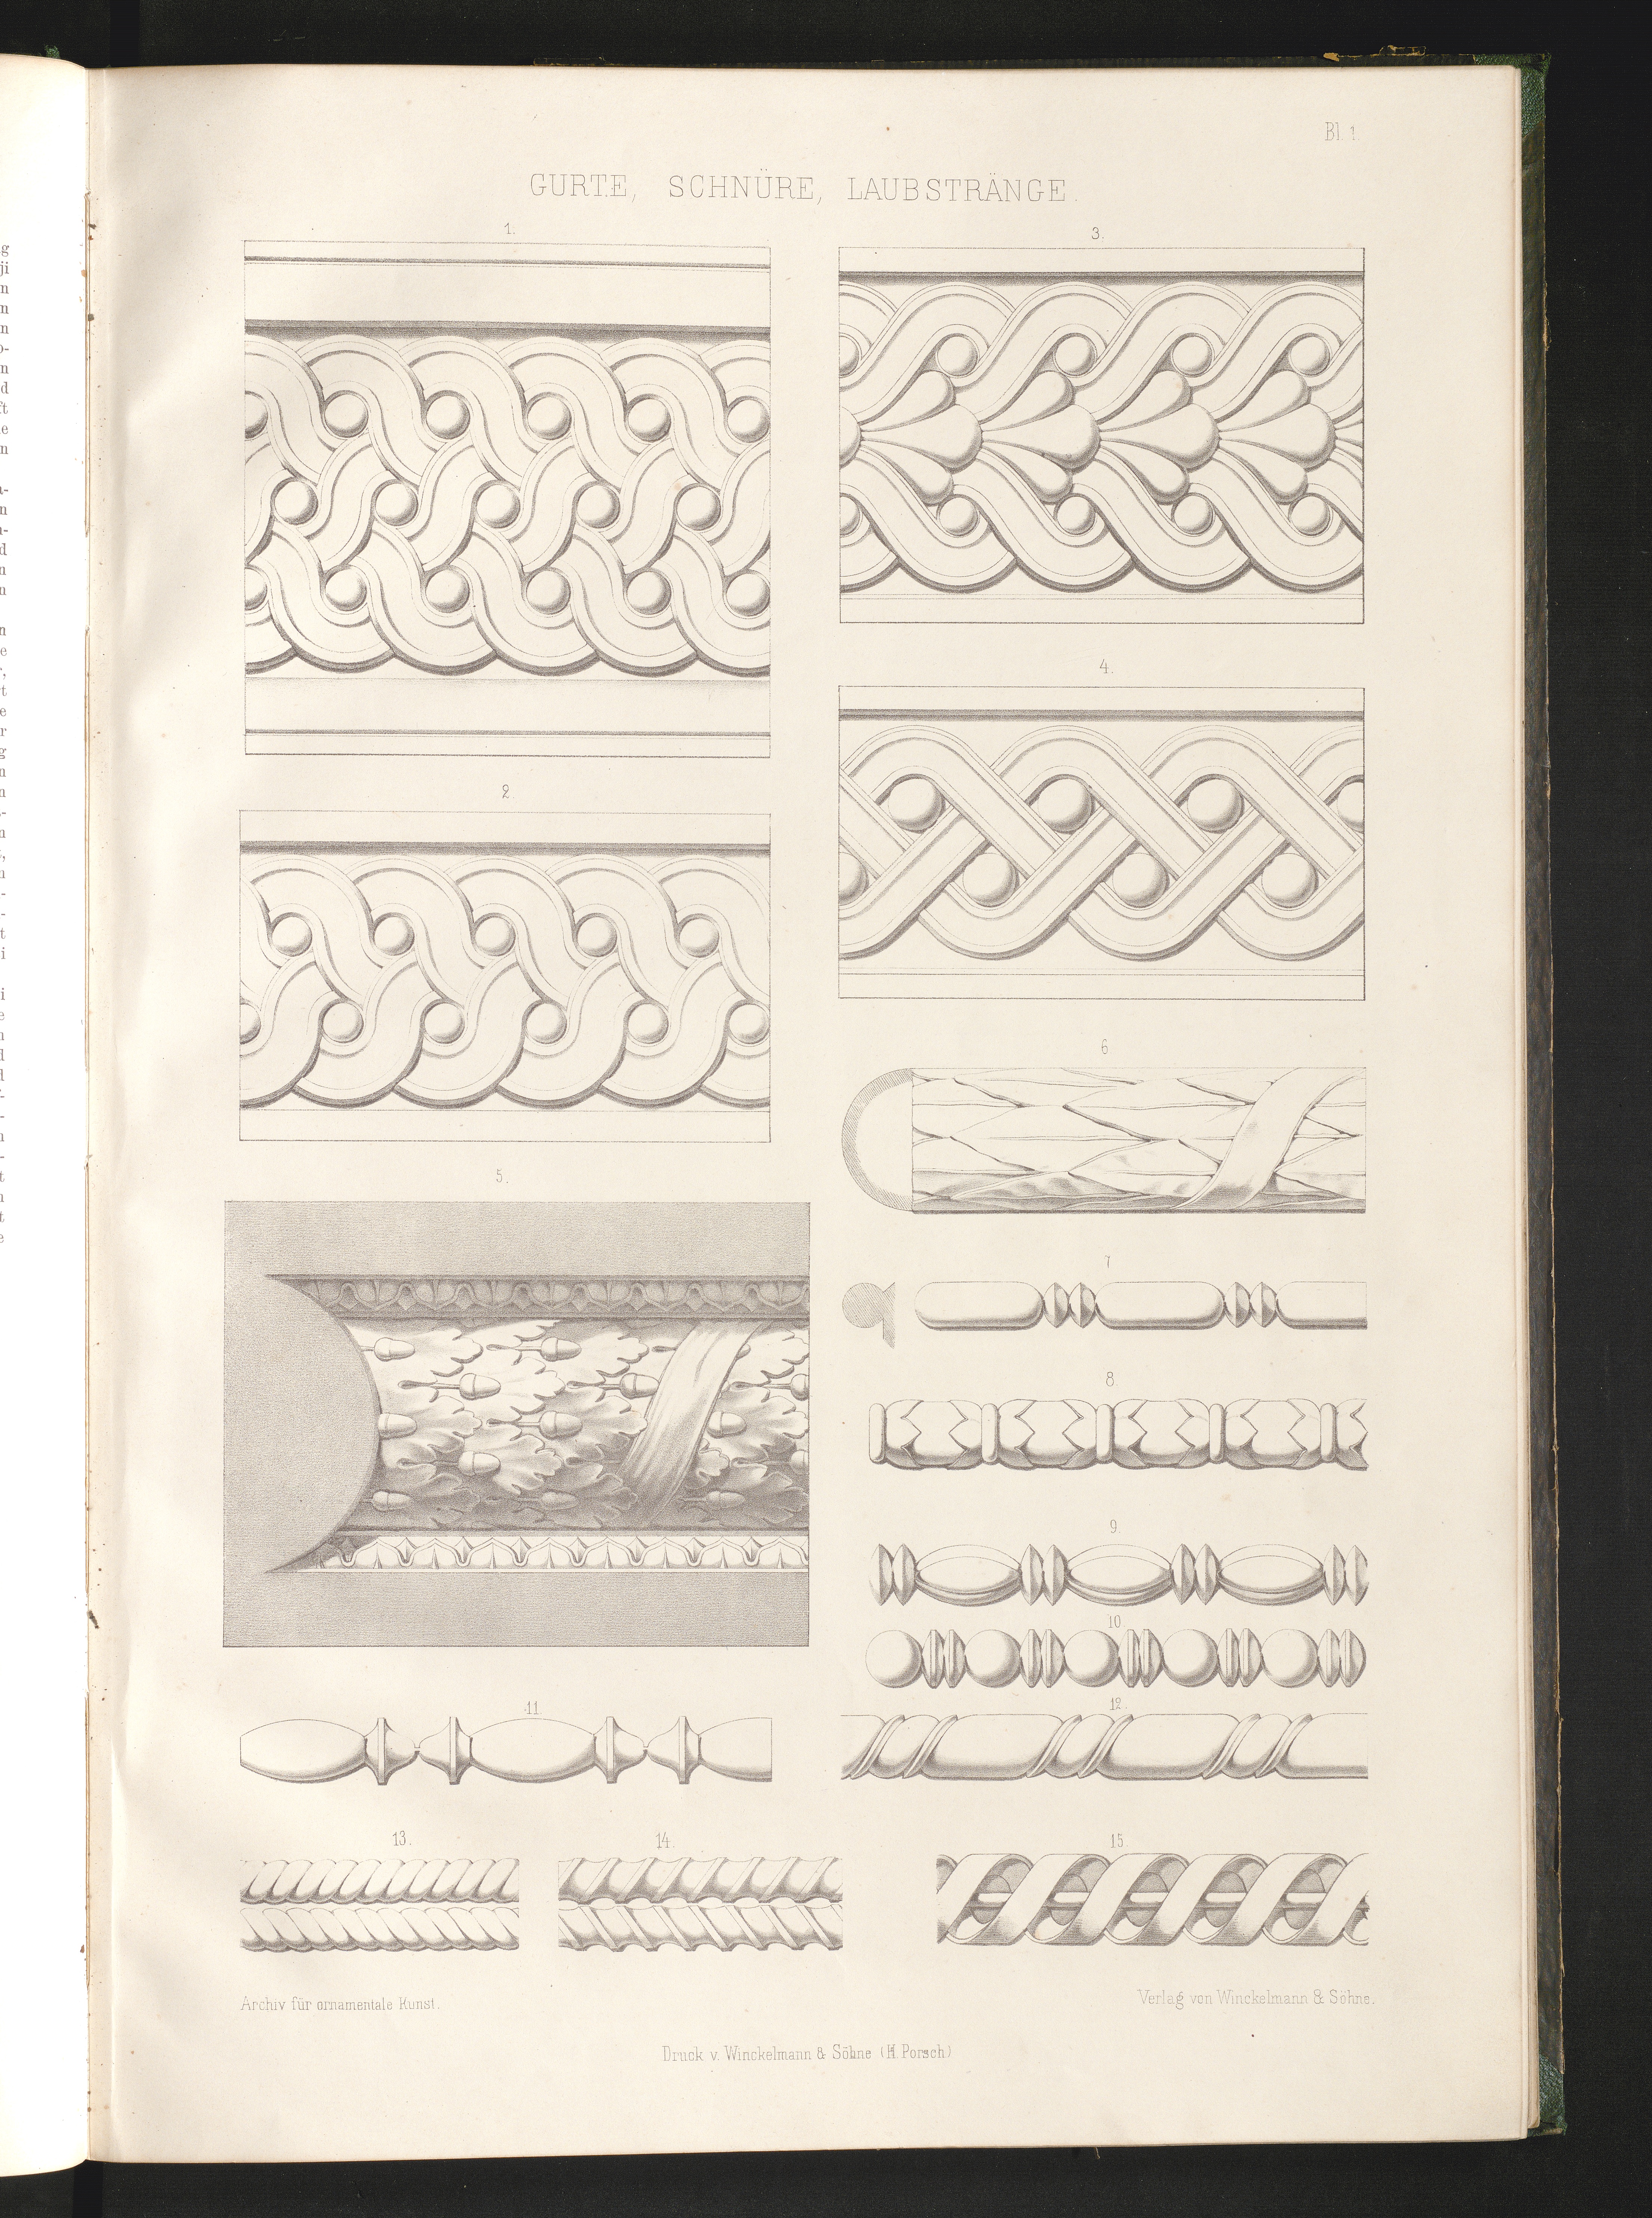 Bl. 1
GURTE, SCHNÜRE, LAUBSTRÄNGE.
1.
3.
4.
2
6
5.
7
8.
9.
10
11.
12.
13.
14.
15.
Archiv für ornamentale Kunst.
Verlag von Winckelmann & Söhne.
Druck v. Winckelmann & Söhne (H. Porsch)